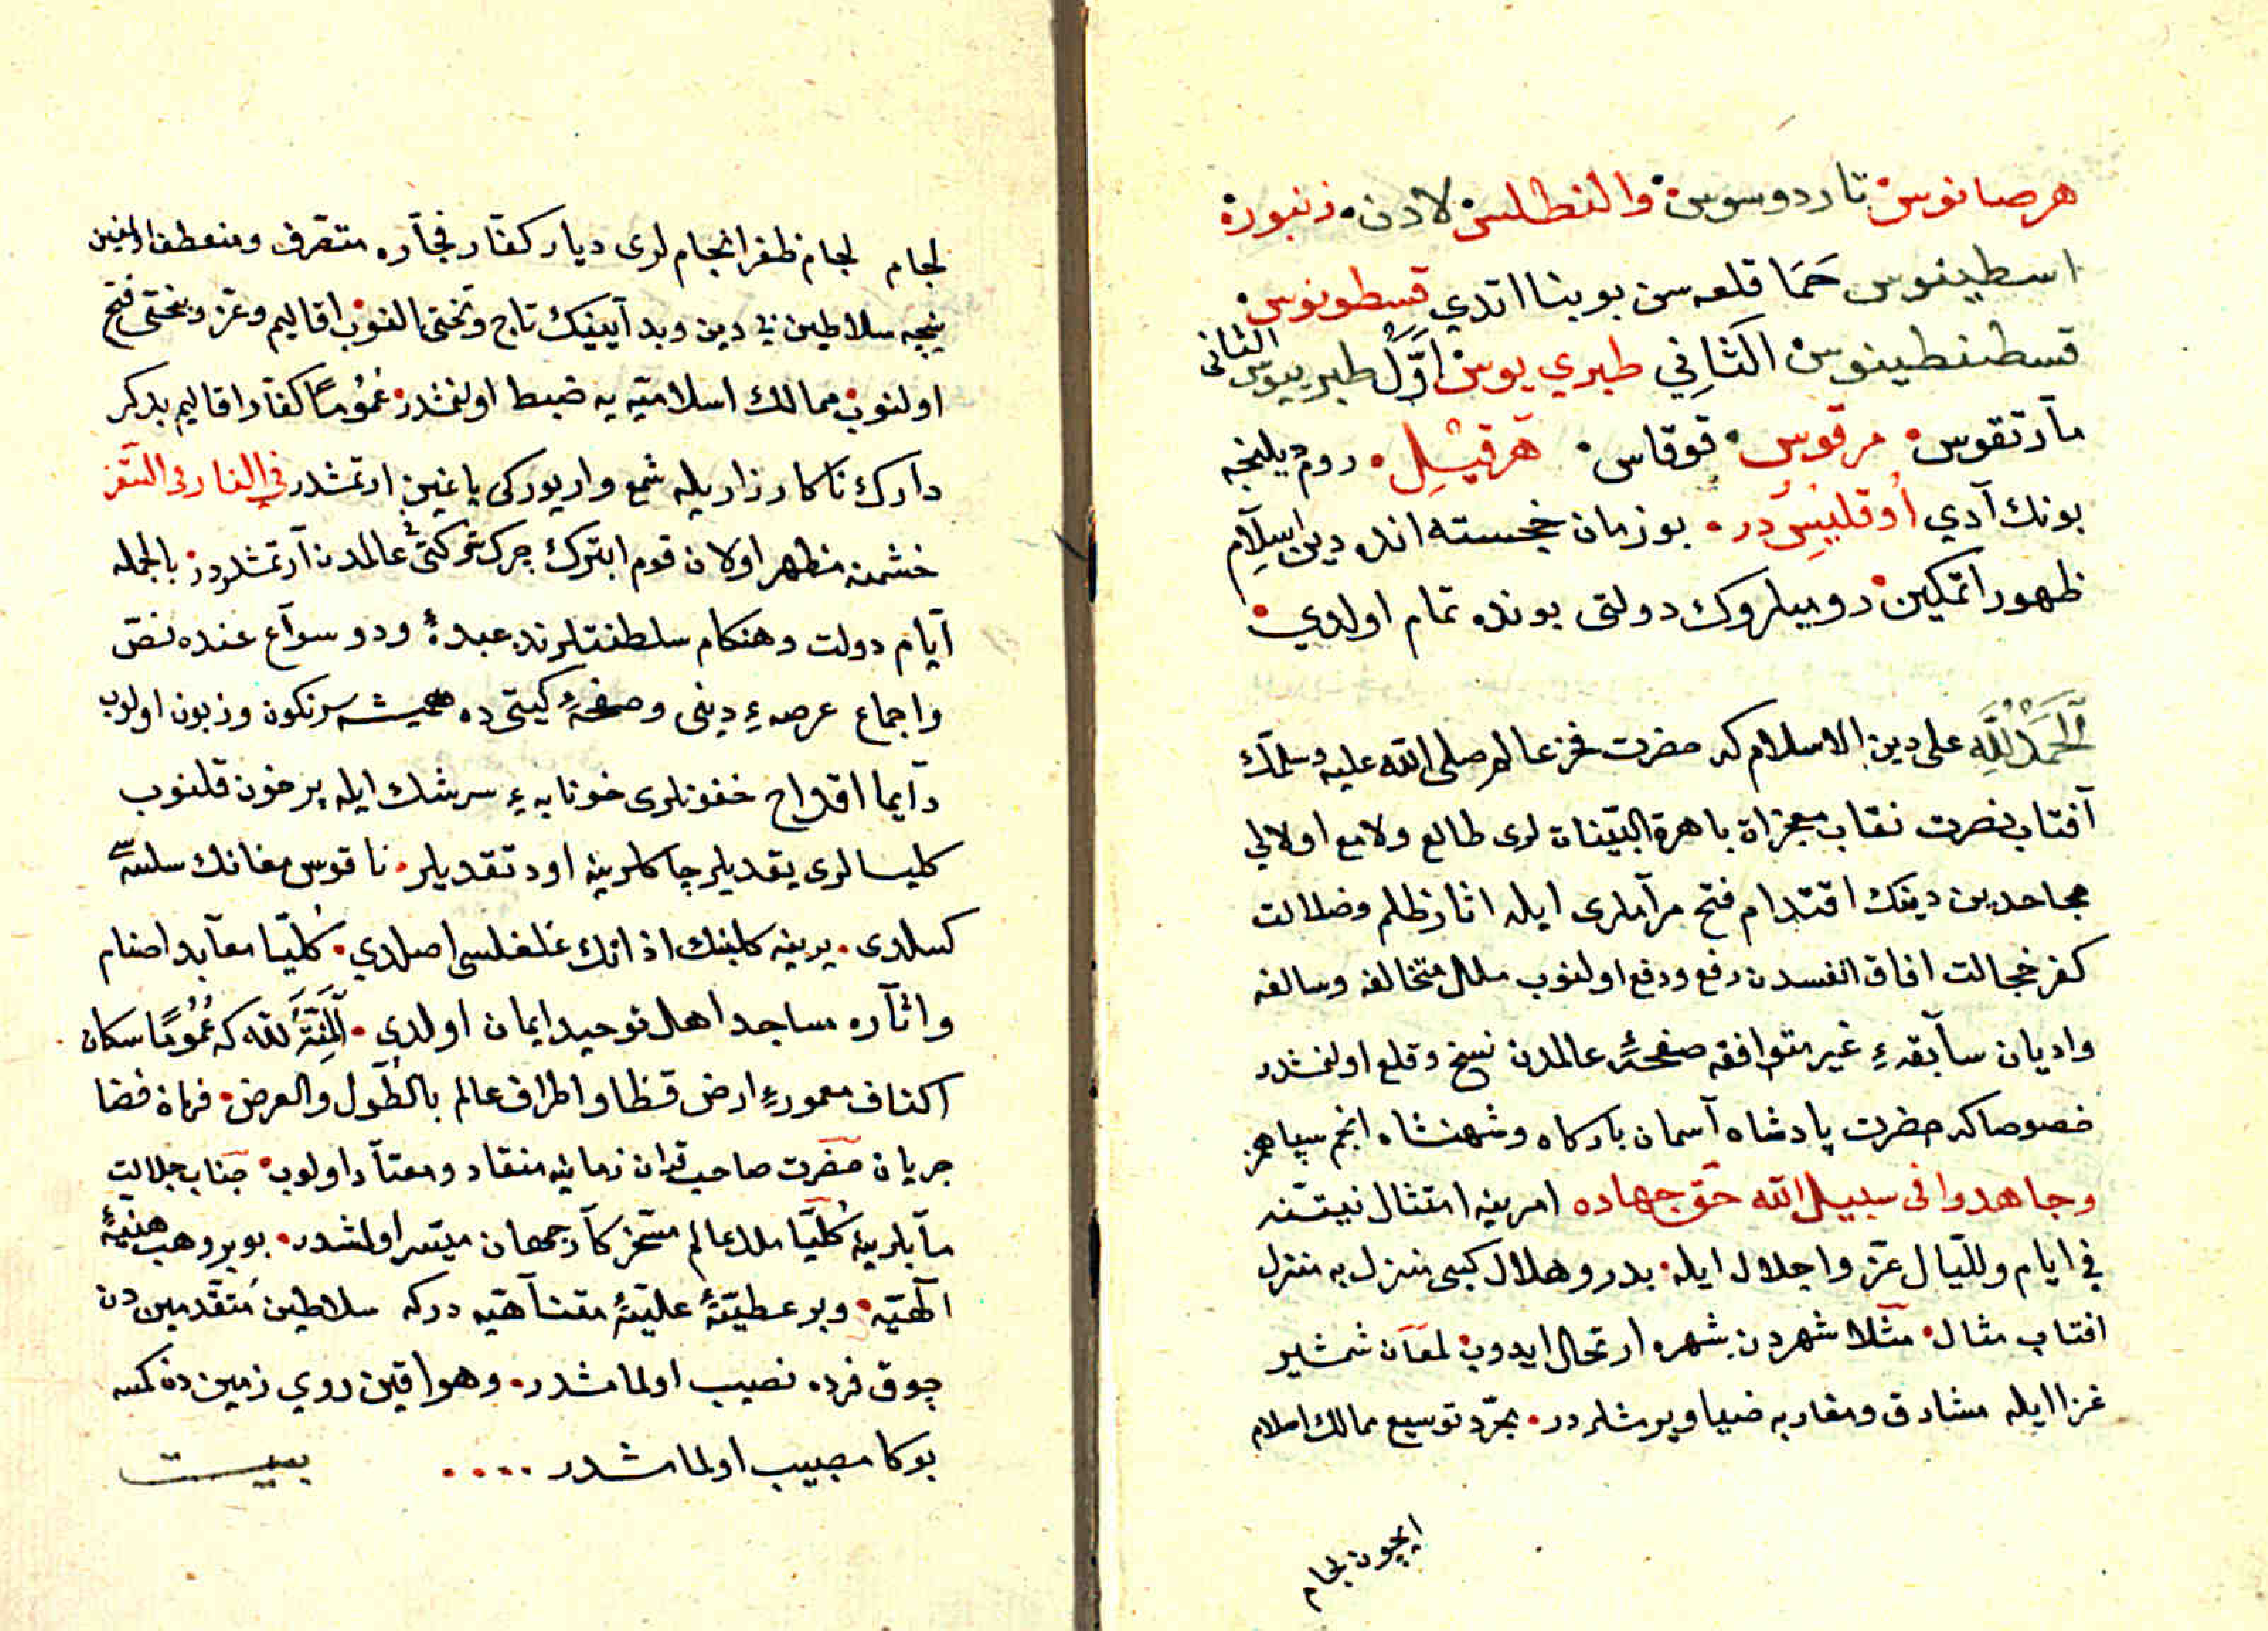 هرصانوس تاردوسوس والنطلس لادن زنبورة
اسطينوس حما قلعه سن بو بنا اتدي قسطونوس
قسطنطينوس الثاني طبري يوس اول طبريوس الثانى
مارتقوس مرقوس قوقاس هرقيل روم ديلنجه
بونك آدي اوقليس در بوزمان خجسته انده دين اسلام
ظهور اتمكين روميلروك دولتى بونده تمام اولدي
الحمد لله على دين الاسلام كه حضرت فخر عالم صلى الله عليه وسلمك
آفتاب نصرت نقاب معجزاة باهرة البينات لرى طالع ولامع اولالي
مجاهدين دينك اقتدام فتح مرآملرى ايله اثار ظلم وضلالت
كفر خجالت افاق انفسدن رفع ودفع اولنوب ملل متخالفه وسالفه
واديان سآبقهء غير متوافقه صفحهٔ عالمدن نسخ وقلع اولنمشدر
خصوصا كه حضرت پادشاه آسمان باركاه وشهنشاه انجم سپاهمز
وجاهدوا فى سبيل الله حق جهاده امرينه امتثال نيتنه
في ايام ولليال عز واجلال ايله بدر وهلال كبى منزل به منزل
افتاب مثال مثلا شهردن شهره ارتحال ايدوب لمعان شمشير
غزا ايله مشارق ومغاربه ضيا ويرمشلردر مجرد توسيع ممالك اسلام
ايچون لجام
لجام لجام ظفر انجام لرى ديار كفار فجآره متصرف ومنعطف اولمغين
نيچه سلاطين بى دين وبد آيينك تاج وتختى النوب اقاليم وعز وبختى فتح
اولنوب ممالك اسلاميه يه ضبط اولنمشدر عموما كفار اقاليم بدكر
دارك ناكارزار يله شمع واريوركى ياغين ارتمشدر في الغار والسقر
خشمنه مظهر اولان قوم ابترك چرك شركتى عالمدن آرتمشلردر بالجمله
آيام دولت وهنكام سلطنتلرنده عبدهٔ ود و سوآع عنده نص
واجماع عرصهء دينى وصفحهٔ كيتى ده هميشه سرنكون وزبون اولوب
دآيما اقداح خفونلرى خونابهء سرشك ايله پرخون قلنوب
كليسالرى يقديلر چاكلرينه اود تقديلر ناقوس مغانك سلسهٔ
كسلدى يرينه كلبنك اذانك غلغلسى اصلدي كليا معآبد اصنام
واثآره مساجد اهل توحيد ايمان اولدى المنة لله كه عموما سكان
اكناف معمورهء ارض قظا واطراف عالم بالطول والعرض فرمان قضا
جريان حضرت صاحب قران زمانيه منقاد ومعتآد اولوب جناب جلالت
مآبلرينه كليا ملك عالم مسخر كآر جهان ميسر اولمشدر بو بر وهب هنيهٔ
الهيه وبر عطيتهٔ عليهٔ متناهيه دركه سلاطين متقدمين دن
چوق فرده نصيب اولمامشدر وهواقين روي زمين دن كمسه
بوكا مصيب اولمامشدر .... بيت